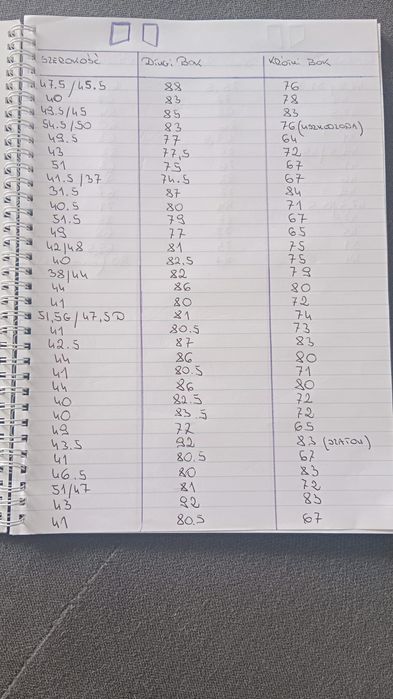 SZEROKOŚĆ DŁUGI BOK KRÓTKI BOK
47.5/45.5 88 76
40 83 78
49.5/45 85 83
54.5/50 83 76 (USZKODZONA)
49.5 77 64
43 77,5 72
51 75 67
41.5/37 74.5 67
31.5 87 84
40.5 80 71
51.5 79 67
49 77 65
42/48 81 75
40 82.5 75
38/44 82 79
44 86 80
41 80 72
51,5G/47,5D 81 74
41 80.5 73
42.5 87 83
44 86 80
41 80.5 71
44 86 80
40 82.5 72
40 83.5 72
49 77 65
43.5 92 83
41 80.5 67
46.5 80 83
51/47 81 72
43 92 83
41 80.5 67